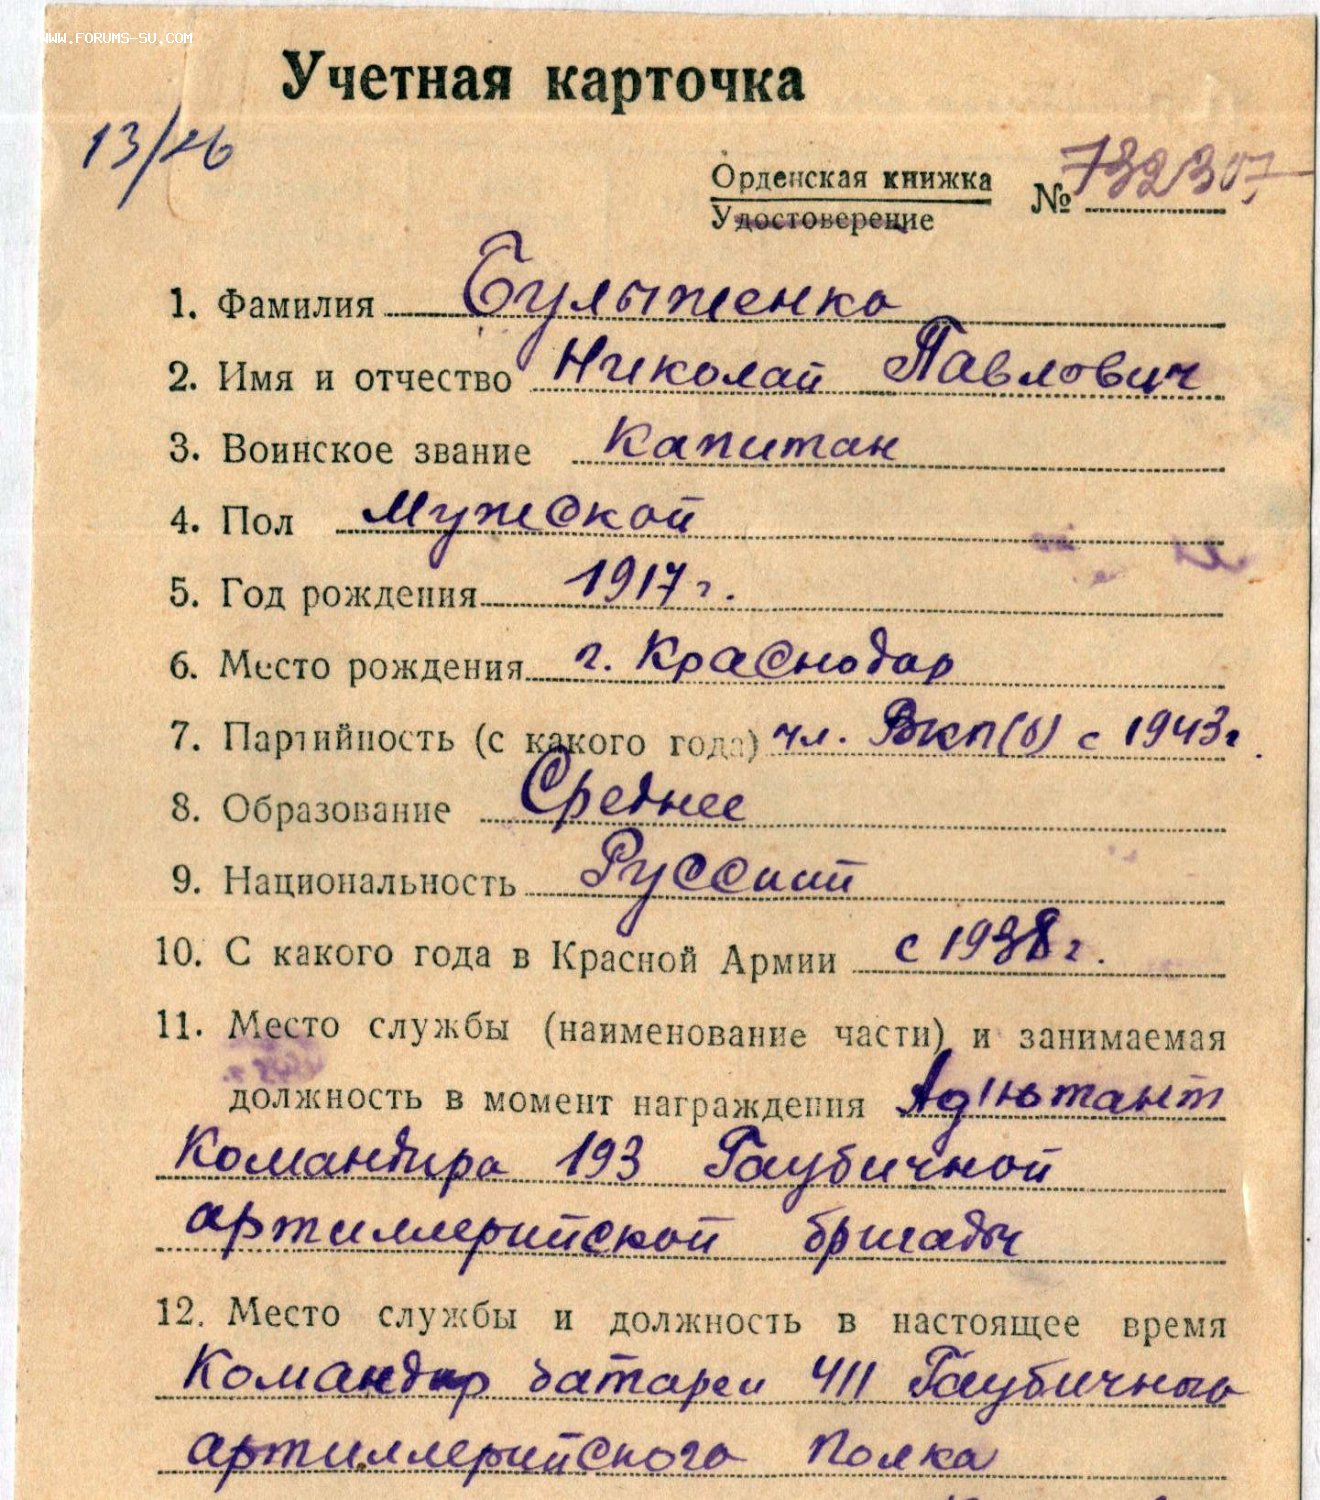 WWW.FORUMS-SU.COM
Учетная карточка
13/
Орденская книжка № 732307
Удостоверение
1. Фамилия Булыженко
2. Имя и отчество Николай Павлович
3. Воинское звание Капитан
4. Пол Мужской
5. Год рождения 1917 г.
6. Место рождения г. Краснодар
7. Партийность (с какого года) чл. ВКП(б) с 1943 г.
8. Образование Среднее
9. Национальность Русский
10. С какого года в Красной Армии с 1938 г.
11. Место службы (наименование части) и занимаемая
должность в момент награждения Адъютант
Командира 193 Гаубичной
артиллерийской бригады
12. Место службы и должность в настоящее время
Командир батареи 411 Гаубичного
артиллерийского полка